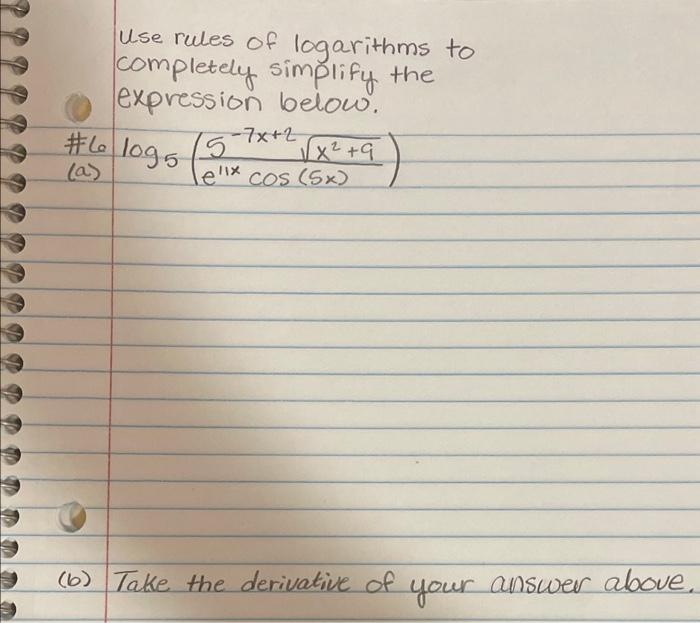 Use rules of logarithms to
completely simplify the
expression below.
#6 log₅ (5^(-7x+2) √(x²+9) / e^(11x) cos (5x))
(a)
(b) Take the derivative of your answer above.